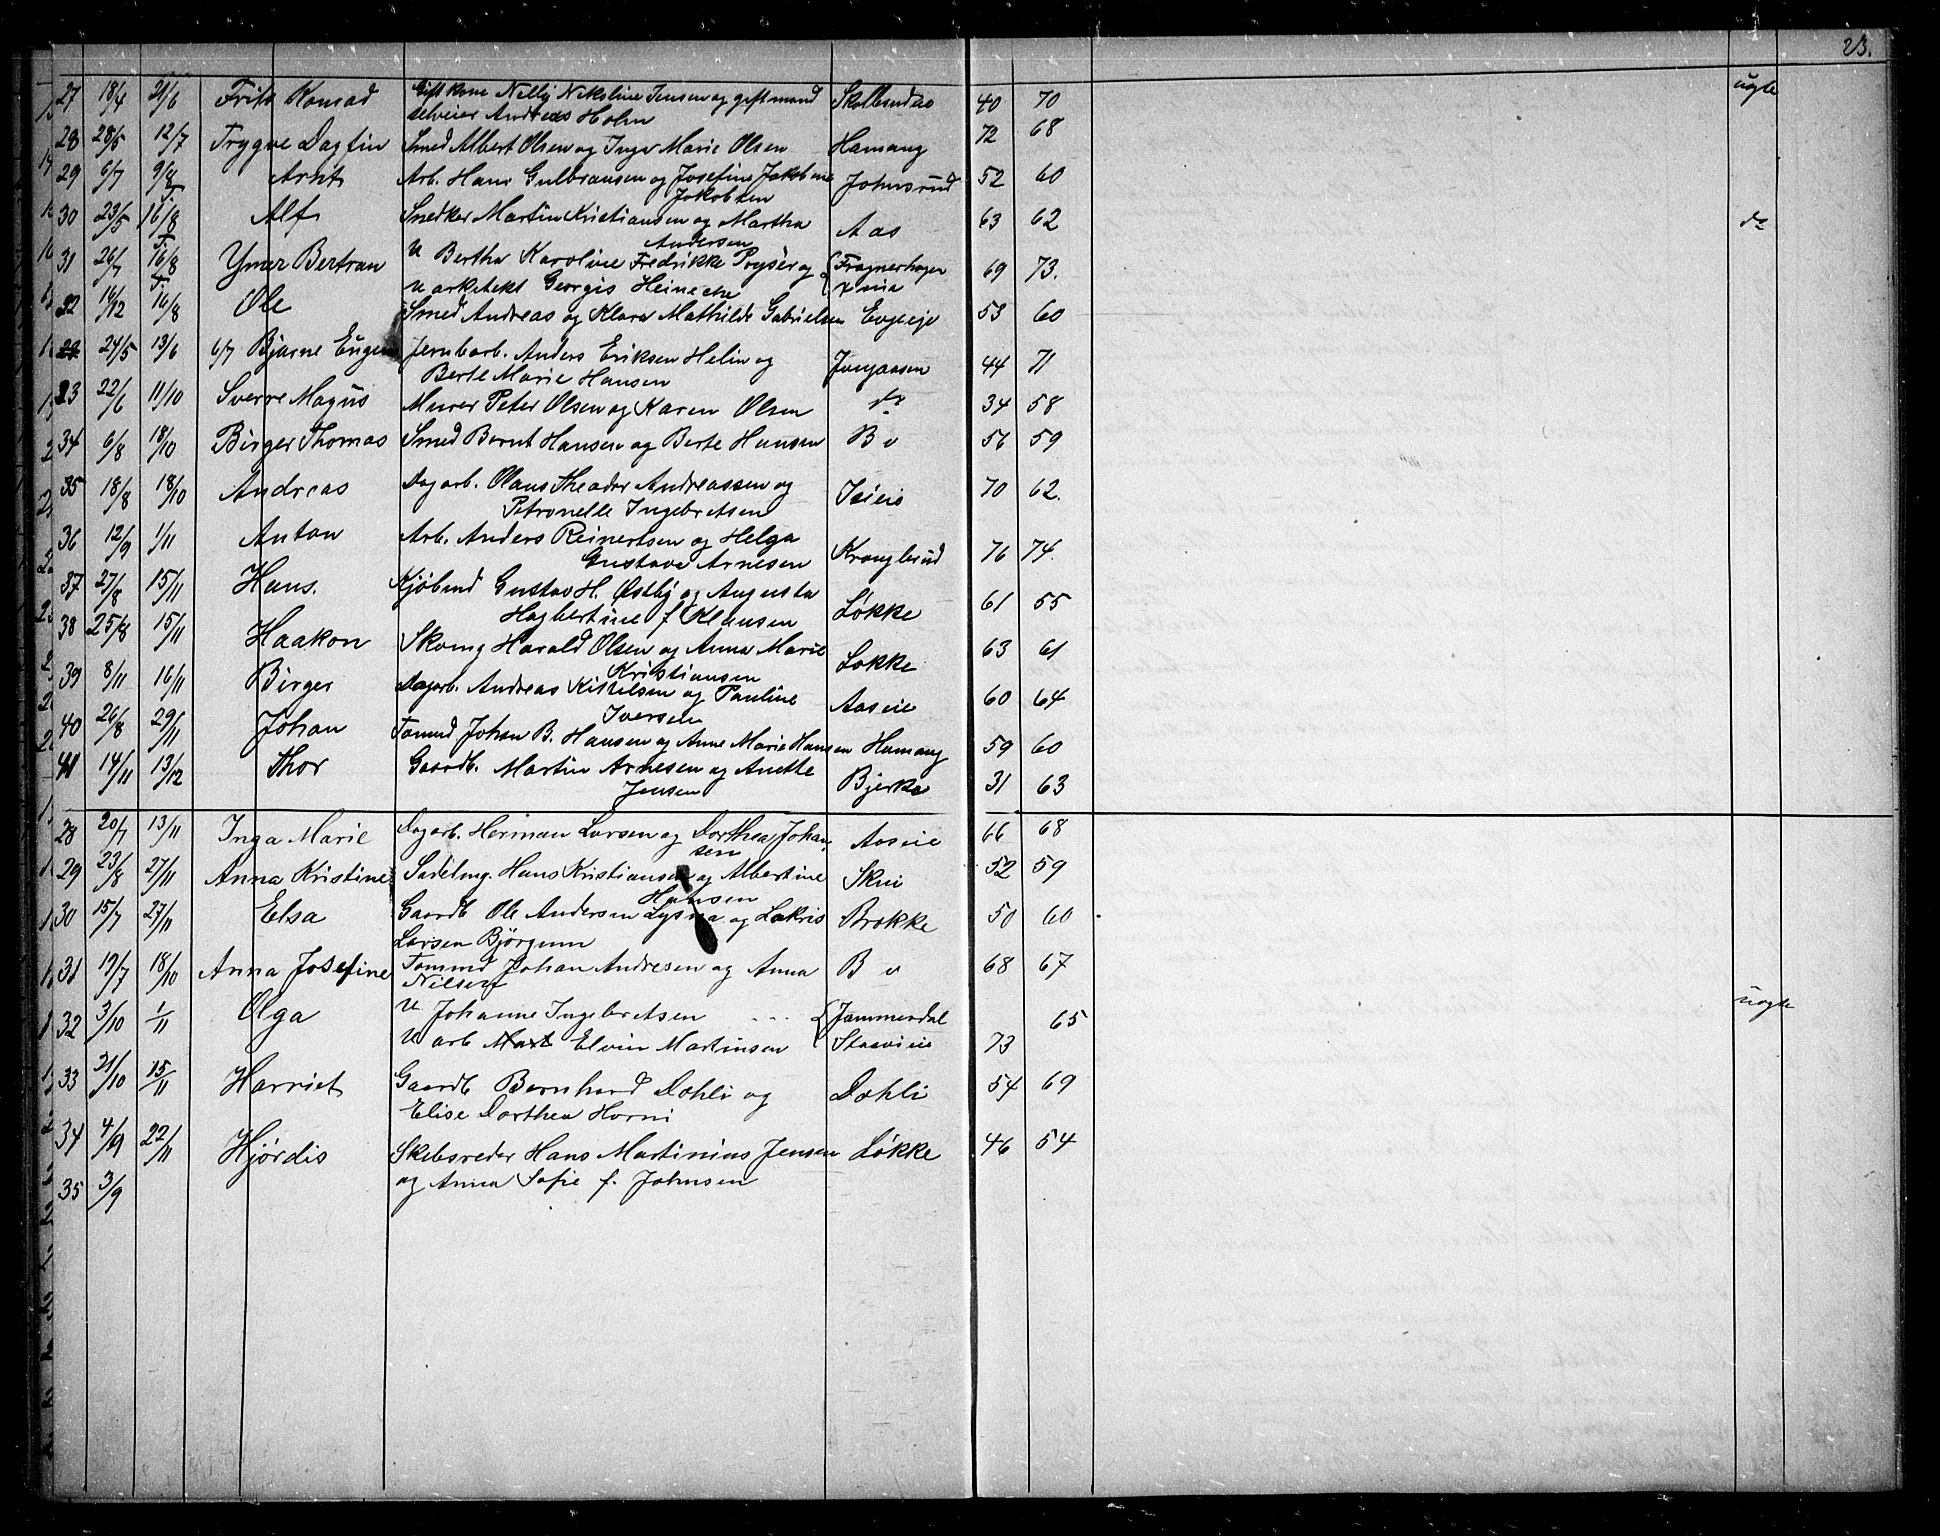 23.
27 18/4 21/6 Frits Konrad Gift kone Nelly Nikoline Jensen og gift mand Skollerudeie 40 70 uægte
selveier Andreas Holm
28 28/5 12/7 Trygve Dagfin Smed Albert Olsen og Inga Marie Olsen Hamang 72 68
29 6/7 9/8 Arnt Arb. Hans Gulbransen og Josefine Jakobine Johnsrud 52 60
Jakobsen
30 23/5 16/8 Alf Snedker Martin Kristiansen og Martha Aas 63 62 do
Andersen
31 26/7 16/8 Ymer Bertran U Bertha Karoline Fredrikke Prysèr og Frognerhagen 69 73.
u arkitekt Georgis Heinecke Xnia
32 16/12 16/8 Ole Smed Andreas og Klara Mathilde Gabrielsen Evjeeje 53 60
24/5 13/6 6/7 Bjarne Eugen Jernbarb. Anders Eriksen Helin og Jongaasen 44 71
Berte Marie Hansen
33 22/6 11/10 Sverre Magnus Murer Peter Olsen og Karen Olsen do 34 58
34 6/8 18/10 Birger Thomas Smed Bernt Hansen og Berte Hansen B v 56 59
35 18/8 18/10 Andreas Dagarb. Olaus Theodor Andreassen og Isieie 70 62.
Petronelle Ingebretsen
36 12/9 1/11 Anton Arb. Anders Reinertsen og Helga Kranglerud 76 74.
Gustava Arnesen
37 27/8 15/11 Hans. Kjøbmd Gustav H. Østby og Augusta Løkke 61 55
Hagbertine f. Klausen
38 25/8 15/11 Haakon Skomg Harald Olsen og Anna Marie Løkke 63 61
Kristiansen
39 8/11 16/11 Birger Dagarb. Andreas Kittilsen og Pauline Aaseie 60 64
Iversen
40 26/8 29/11 Johan Tømmd Johan B. Hansen og Anne Marie Hansen Hamang 59 60
41 14/11 13/12 Thor Gaardb. Martin Arnesen og Anette Bjerke 31 63
Jensen
28 20/7 13/11 Inga Marie Dagarb. Herman Larsen og Dorthea Johan- Aaseie 66 68
sen
29 23/8 27/11 Anna Kristine Sadelmg. Hans Kristiansen og Albertine Skui 52 59
Hansen
30 15/7 27/11 Elsa Gaardb Ole Andersen og Lakris Brokke 50 60
Larsen Björgum
31 19/7 18/10 Anna Josefine Tømmd Johan Andresen og Anna B v 68 67
Nilsen
32 3/10 1/11 Olga U Johanne Ingebretsen Jammerdal 65 uægte
U arb Mart Elvin Martinsen Staavieie 73
33 21/10 15/11 Harriet Gaardb Bernhard Dahli og Dahli 54 69
Elise Dorthea Horni
34 4/9 22/11 Hjørdis Skibsreder Hans Martinius Jensen Løkke 46 54
og Anna Sofie f. Johnsen
35 3/9